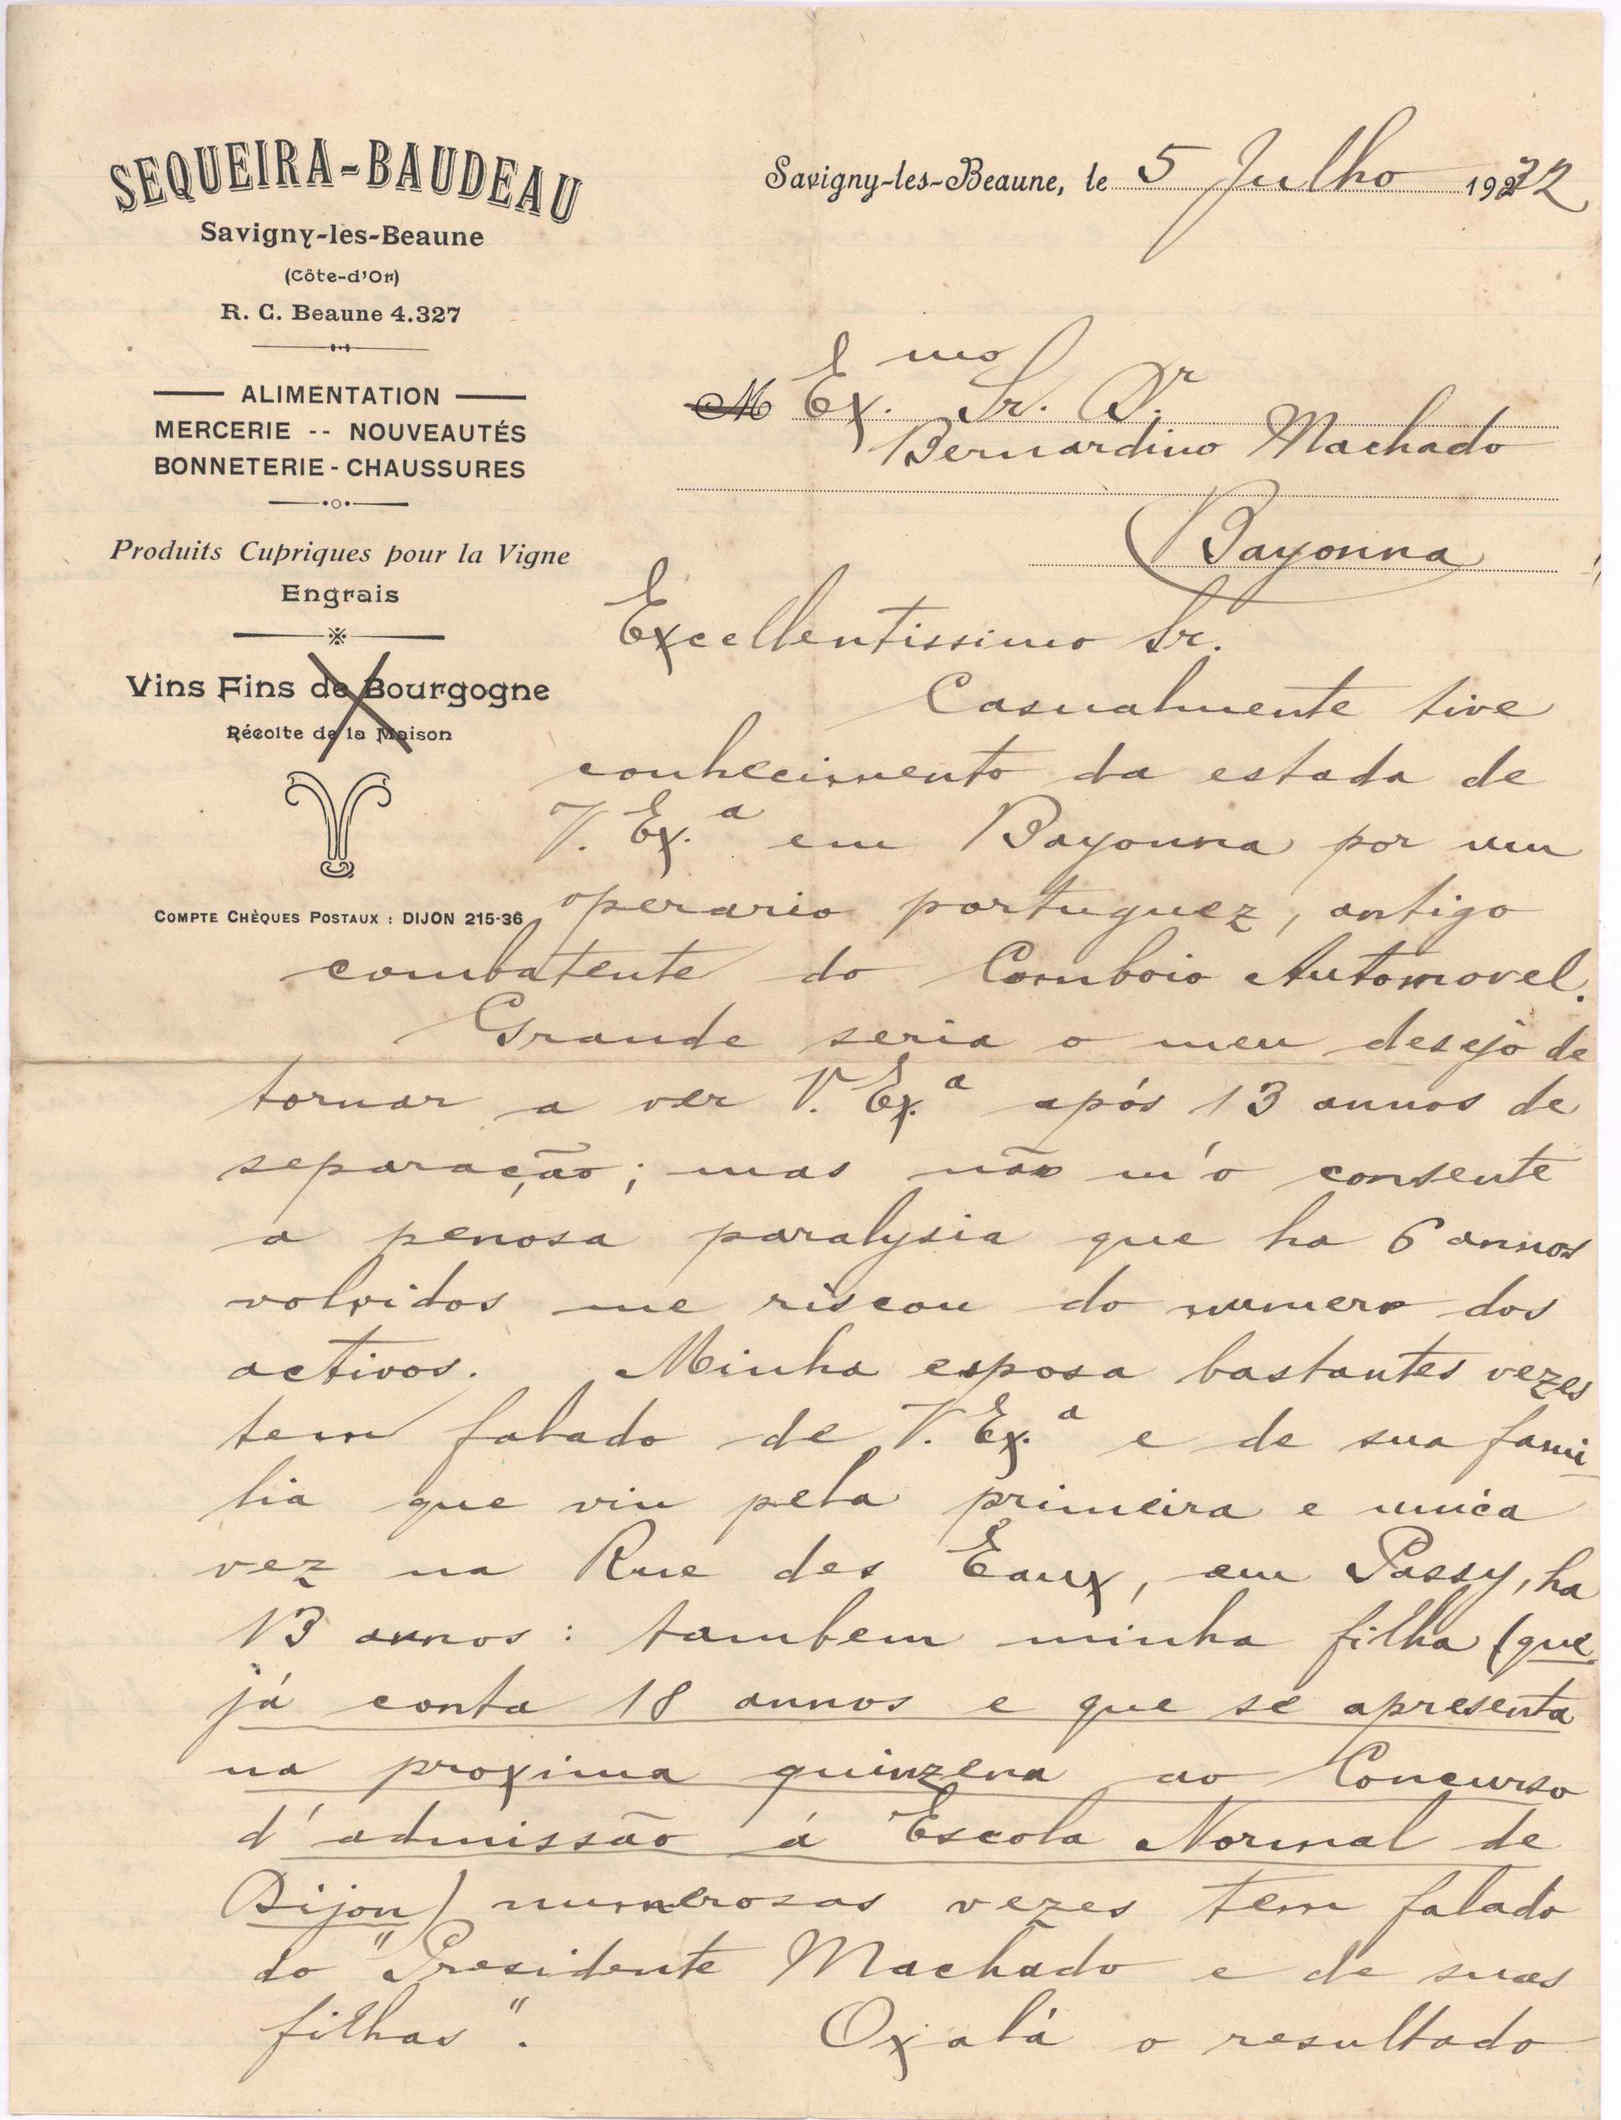 SEQUEIRA-BAUDEAU
Savigny-les-Beaune
(Côte-d'Or)
R. C. Beaune 4.327
ALIMENTATION
MERCERIE -- NOUVEAUTÉS
BONNETERIE - CHAUSSURES
Produits Cupriques pour la Vigne
Engrais
Vins Fins de Bourgogne
Récolte de la Maison
COMPTE CHÈQUES POSTAUX : DIJON 215-36
Savigny-les-Beaune, le 5 Julho 1932
M Ex.mo Sr. Dr.
Bernardino Machado
Bayonna
Excellentissimo Sr.
Casualmente tive
conhecimento da estada de
V. Ex.a em Bayonna por um
operario portuguez, antigo
combatente do Comboio Automovel.
Grande seria o meu desejo de
tornar a ver V. Ex.a após 13 annos de
separação; mas não m'o consente
a penosa paralysia que ha 6 annos
volvidos me riscou do numero dos
activos. Minha esposa bastantes vezes
tem falado de V. Ex.a e de sua fami
lia que viu pela primeira e unica
vez na Rue des Eaux, em Passy, ha
13 annos: tambem minha filha (que
já conta 18 annos e que se apresenta
na proxima quinzena ao Concurso
d'admissão á Escola Normal de
Dijon) numerosas vezes tem falado
do "Presidente Machado e de suas
filhas". Oxalá o resultado